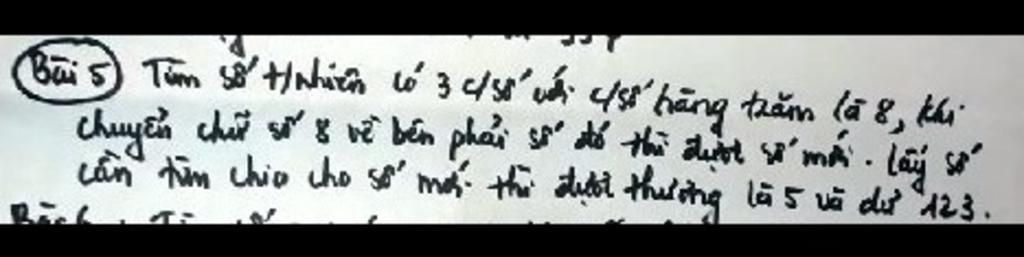 Bài 5 Tìm số t/nhiên có 3 c/số với c/số hàng trăm là 8, khi
chuyển chữ số 8 về bên phải số đó thì được số mới. Lấy số
cần tìm chia cho số mới thì được thương là 5 và dư 123.